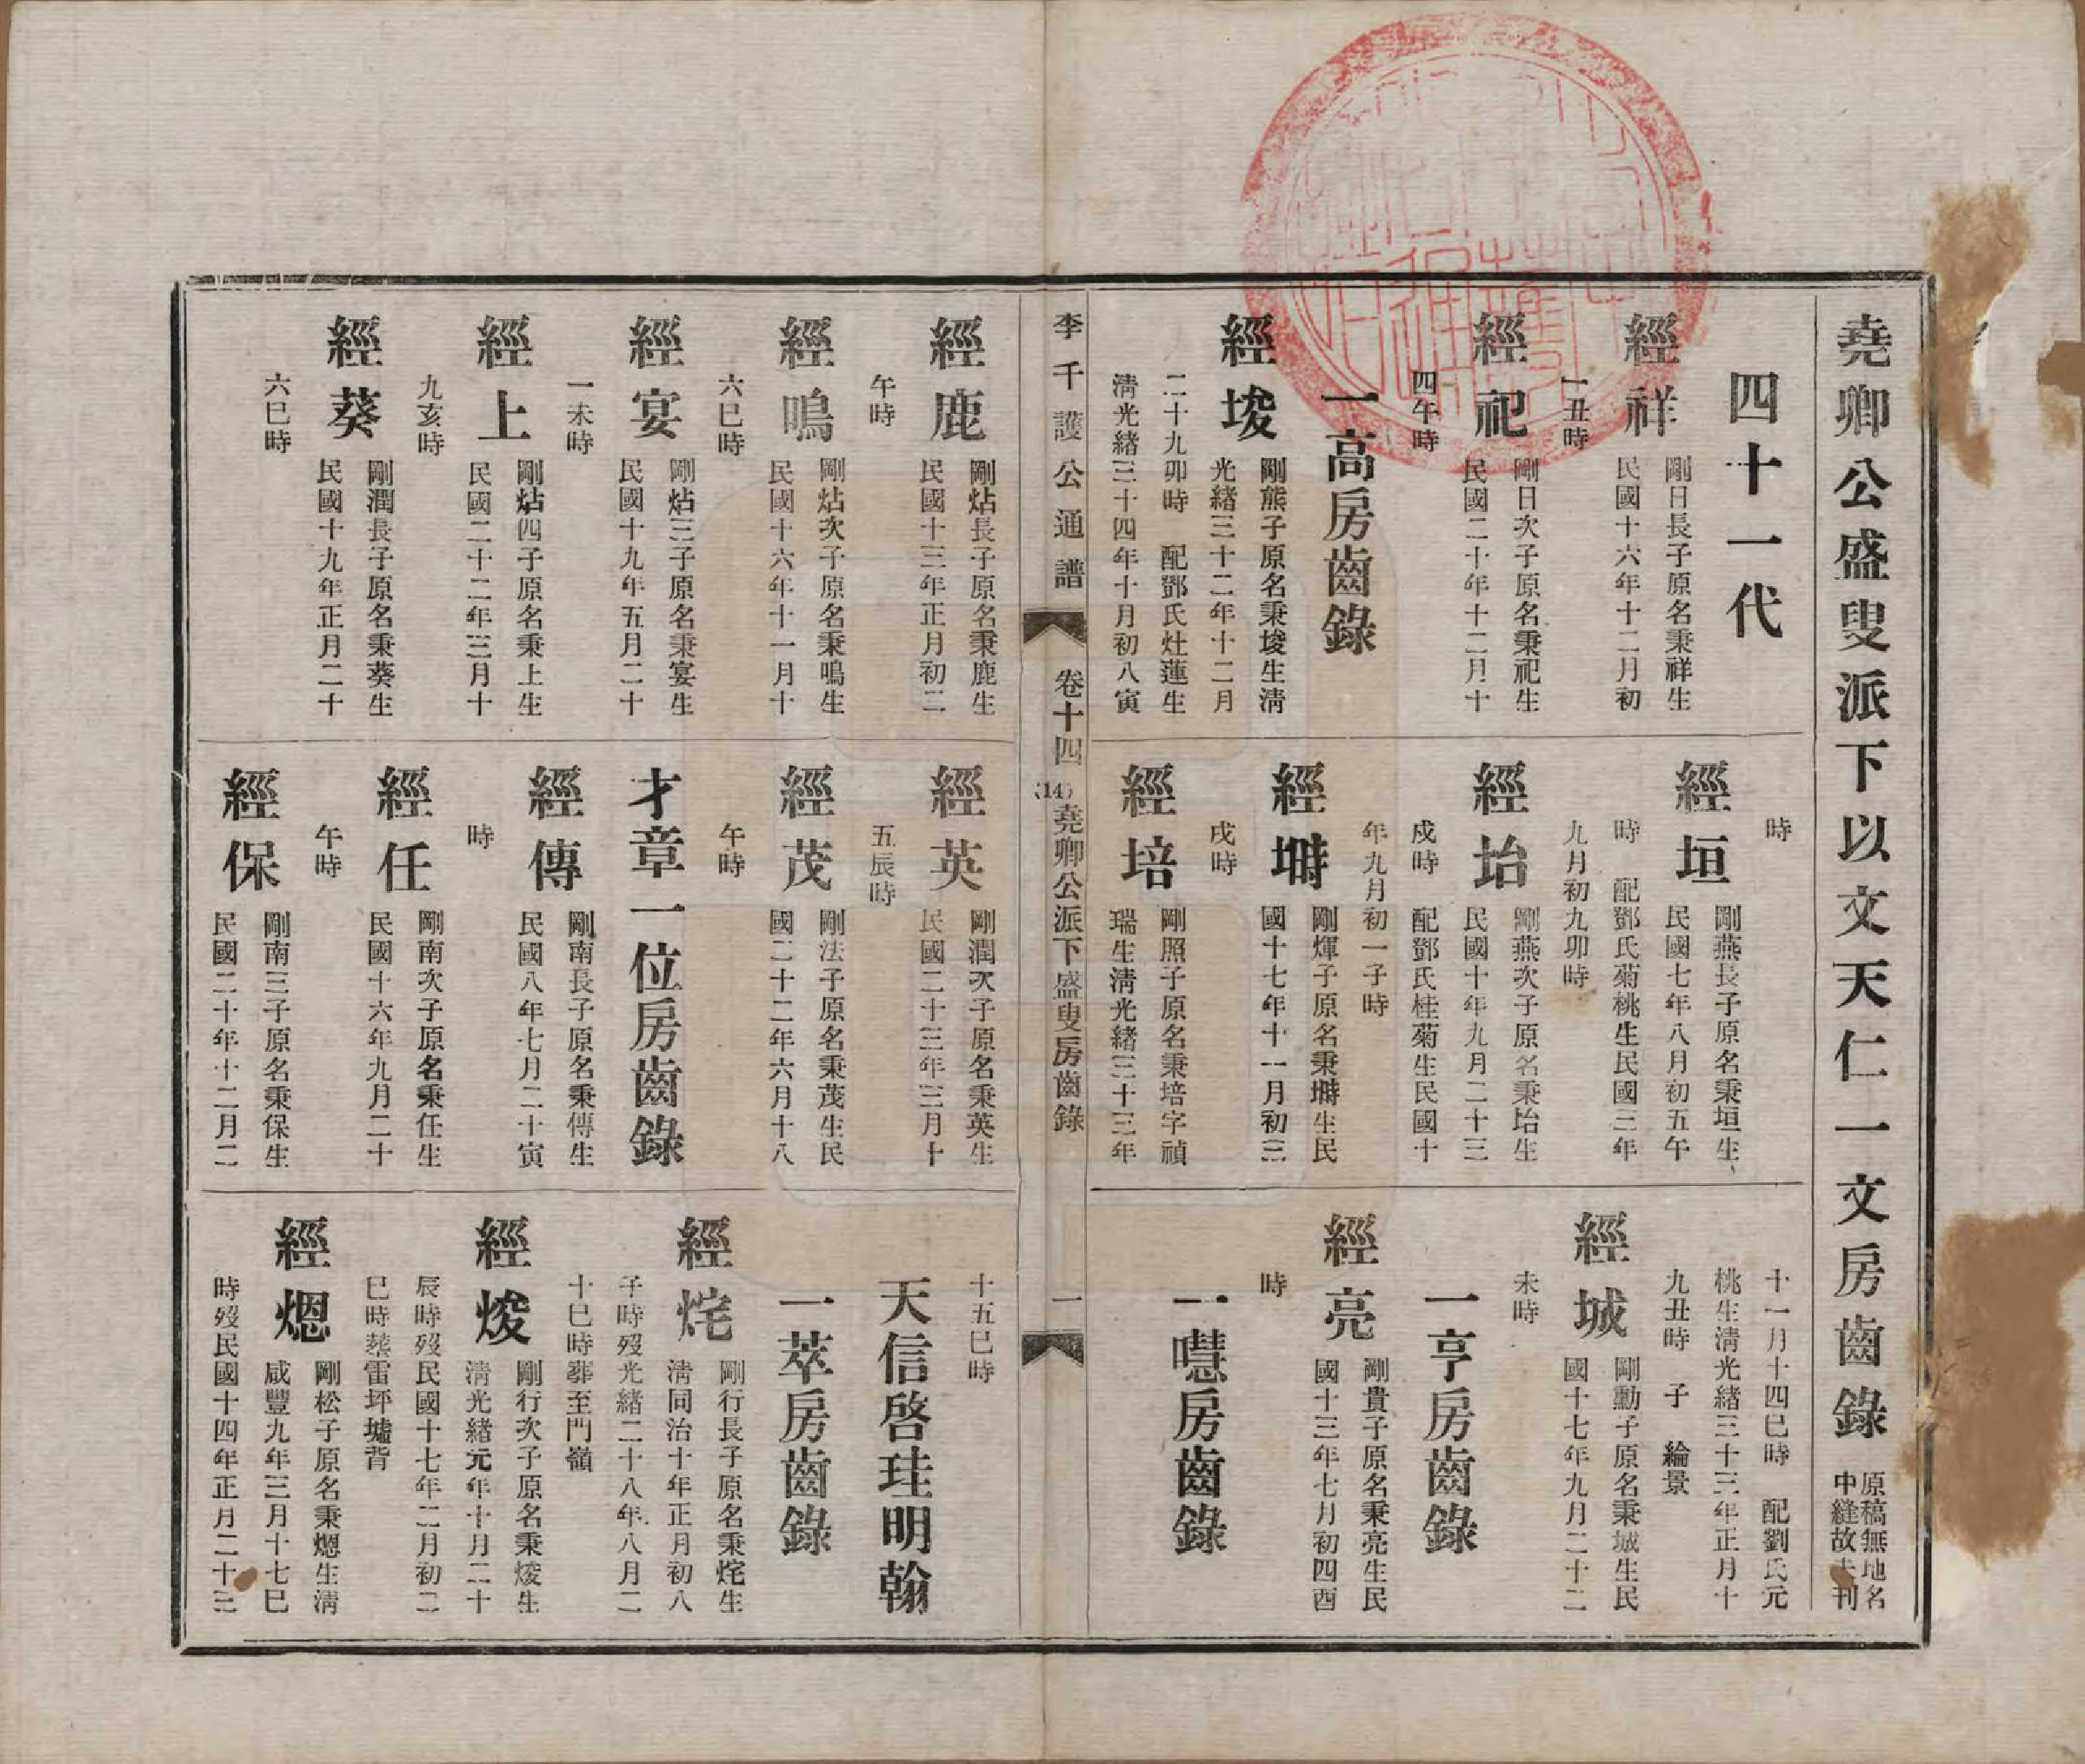 堯卿公盛叟派下以文天仁一文房齒錄
原稿無地名
中縫故未刊
四十一代
經祥
剛日長子原名秉祥生
民國十六年十二月初
一丑時
經祀
剛日次子原名秉祀生
民國二十年十二月十
四午時
一高房齒錄
經埈
剛熊子原名秉埈生淸
光緒三十二年十二月
二十九卯時 配鄧氏灶蓮生
淸光緒三十四年十月初八寅
時
經垣
剛燕長子原名秉垣生
民國七年八月初五午
時 配鄧氏菊桃生民國三年
九月初九卯時
經坮
剛燕次子原名秉坮生
民國十年九月二十三
戍時 配鄧氏桂菊生民國十
年九月初一子時
經塒
剛煇子原名秉塒生民
國十七年十一月初三
戌時
經培
剛照子原名秉培字禎
瑞生淸光緒三十三年
十一月十四巳時 配劉氏元
桃生淸光緒三十三年正月十
九丑時 子 綸景
經城
剛勳子原名秉城生民
國十七年九月二十二
未時
一亨房齒錄
經亮
剛貴子原名秉亮生民
國十三年七月初四酉
時
一嚞房齒錄
李千護公通譜
卷十四
(14)
堯卿公派下盛叟房齒錄
一
經鹿
剛炶長子原名秉鹿生
民國十三年正月初二
午時
經鳴
剛炶次子原名秉鳴生
民國十六年十一月十
六巳時
經宴
剛炶三子原名秉宴生
民國十九年五月二十
一未時
經上
剛炶四子原名秉上生
民國二十二年三月十
九亥時
經葵
剛潤長子原名秉葵生
民國十九年正月二十
六巳時
經英
剛潤次子原名秉英生
民國二十三年三月十
五辰時
經茂
剛法子原名秉茂生民
國二十二年六月十八
午時
才章一位房齒錄
經傳
剛南長子原名秉傳生
民國八年七月二十寅
時
經任
剛南次子原名秉任生
民國十六年九月二十
午時
經保
剛南三子原名秉保生
民國二十年十二月二
十五巳時
天信啓珪明翰
一萃房齒錄
經烢
剛行長子原名秉烢生
淸同治十年正月初八
子時歿光緒二十八年八月二
十巳時葬至門嶺
經焌
剛行次子原名秉焌生
淸光緒元年十月二十
辰時歿民國十七年二月初二
巳時葬雷坪墟背
經熜
剛松子原名秉熜生淸
咸豐九年三月十七巳
時歿民國十四年正月二十三